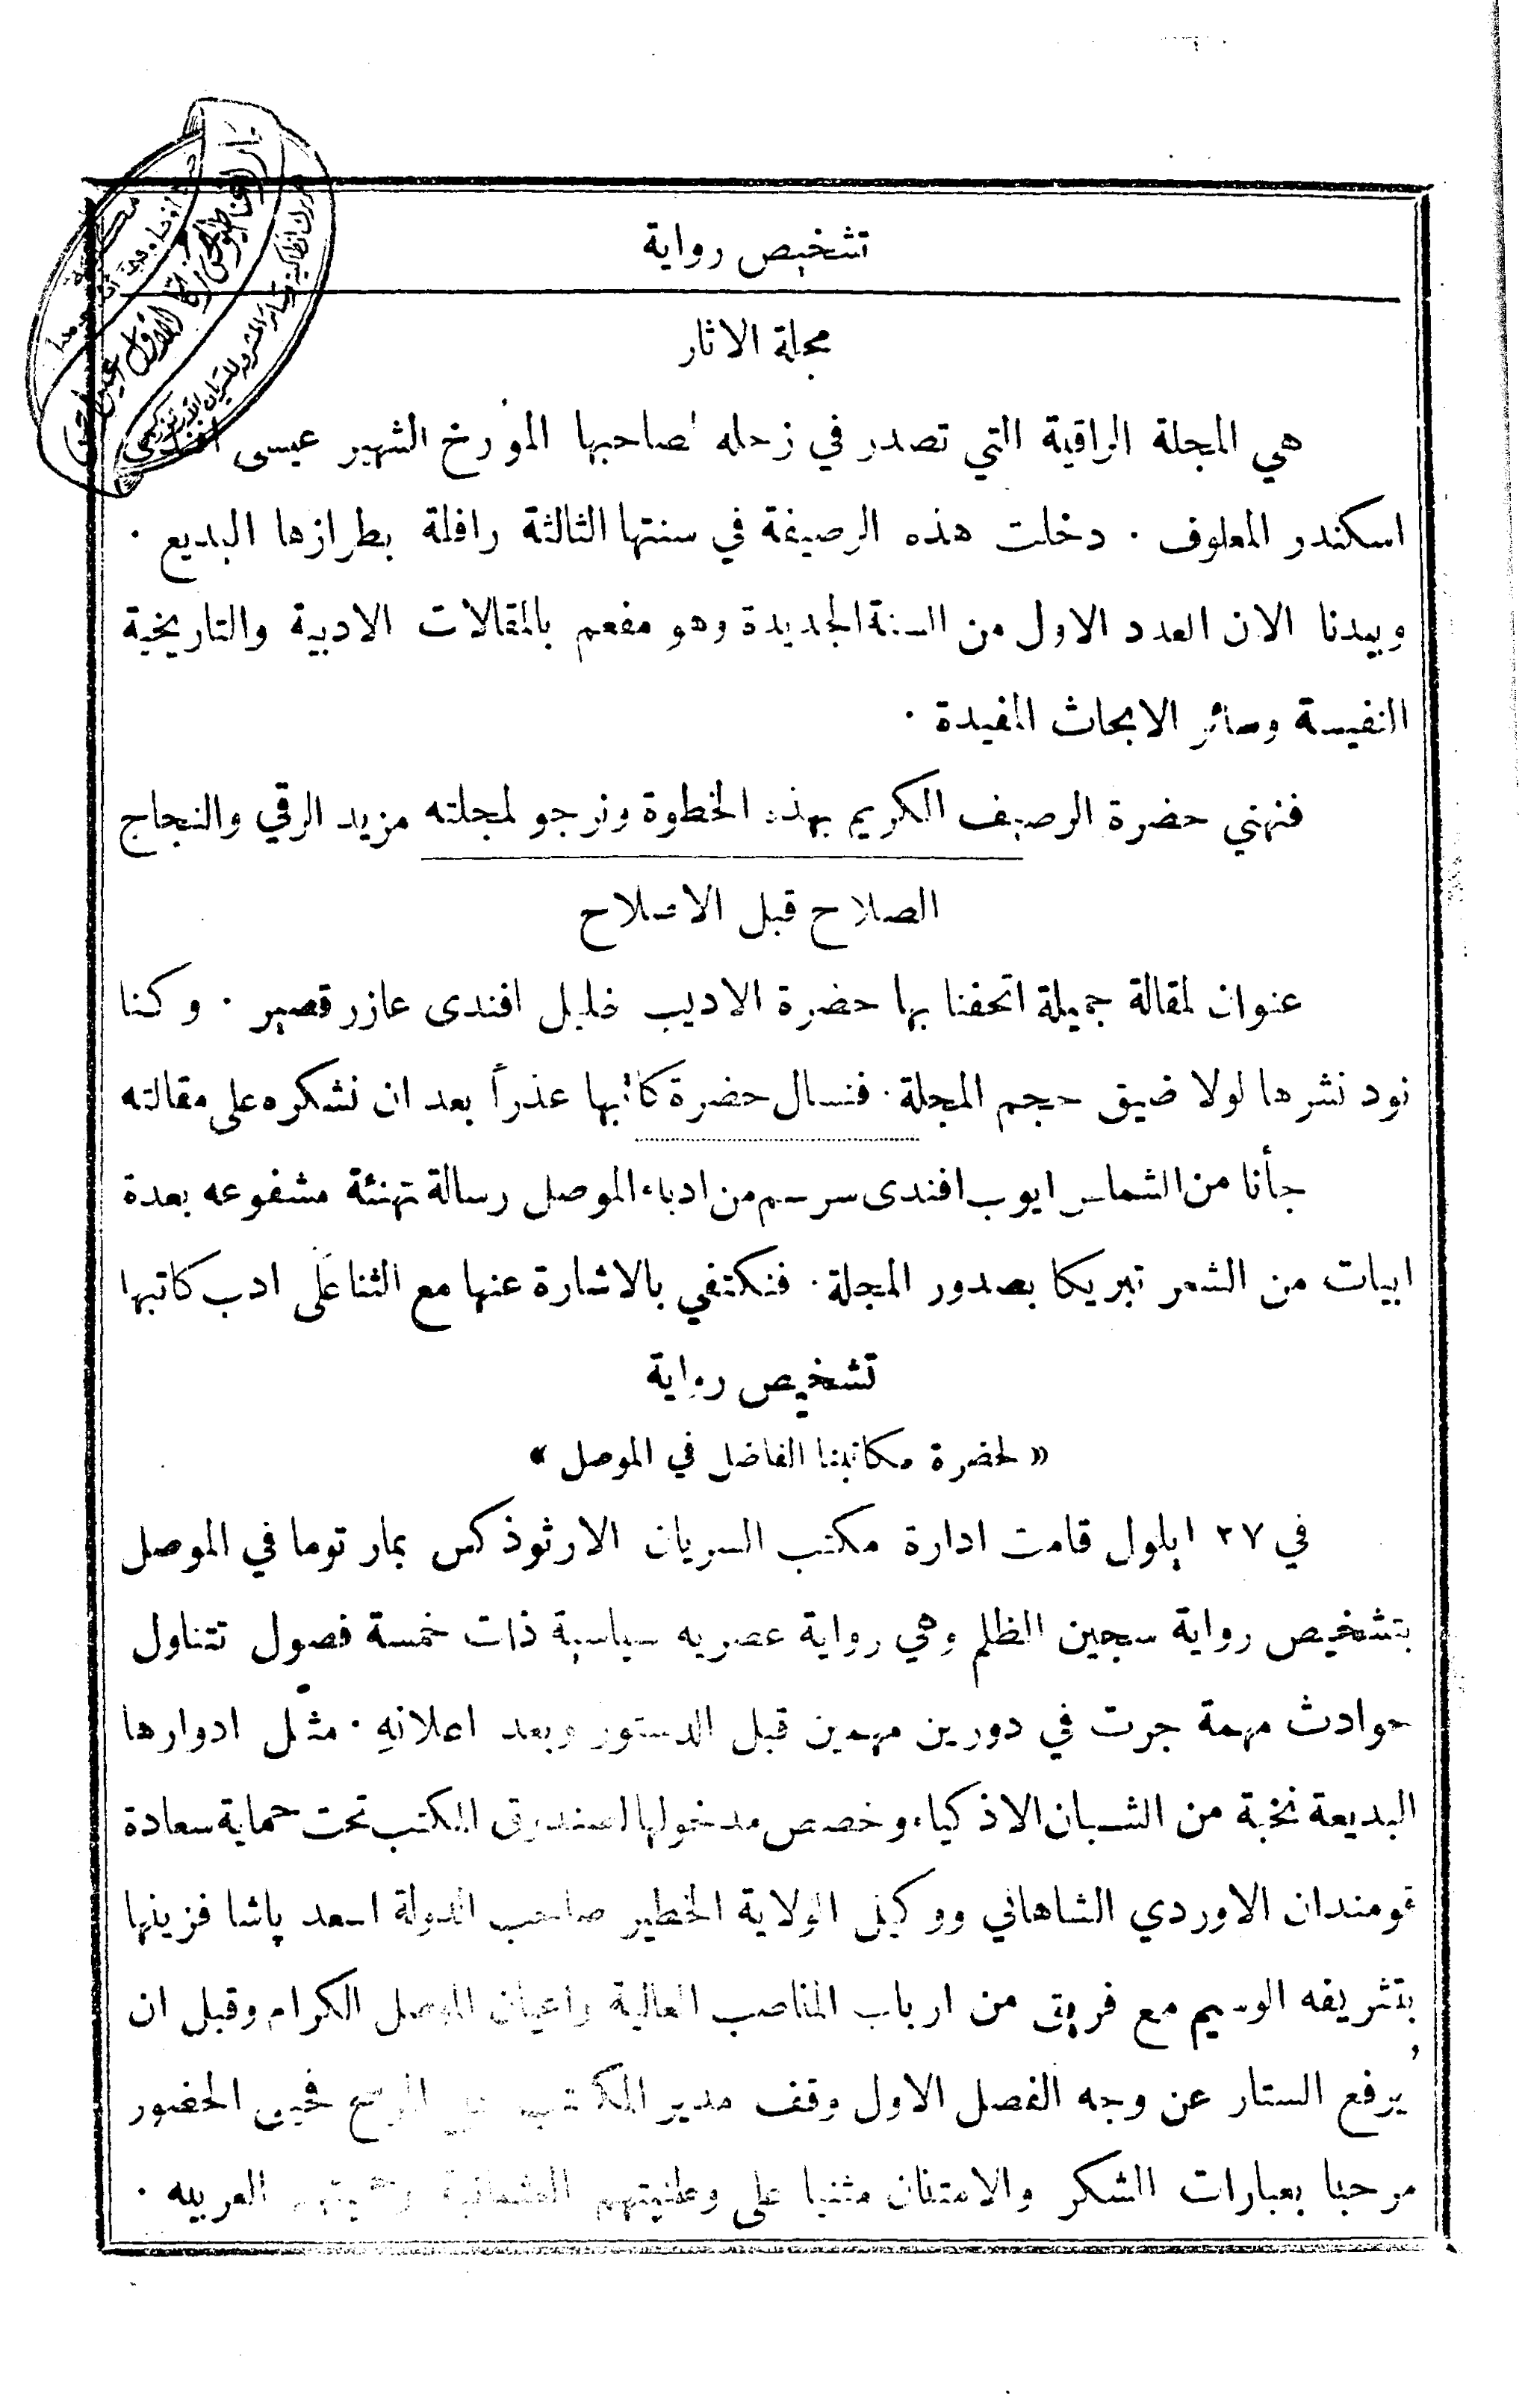 تشخيص رواية
مجلة الاثار
هي المجلة الراقية التي تصدر في زحله لصاحبها المؤرخ الشهير عيسى افندي
اسكندر المعلوف · دخلت هذه الرصيفة في سنتها الثالثة رافلة بطرازها البديع ·
وبيدنا الان العدد الاول من السنة الجديدة وهو مفعم بالمقالات الادبية والتاريخية
النفيسة وسائر الابحاث المفيدة ·
فنهني حضرة الرصيف الكريم بهذه الخطوة ونرجو لمجلته مزيد الرقي والنجاج
الصلاح قبل الاصلاح
عنوان لمقالة جميلة اتحفنا بها حضرة الاديب خليل افندى عازر قصير · وكنا
نود نشرها لولا ضيق حجم المجلة · فنسال حضرة كاتبها عذراً بعد ان نشكره على مقالته
جأنا من الشماس ايوب افندى سرسم من ادباء الموصل رسالة تهنئة مشفوعه بعدة
ابيات من الشعر تبريكا بصدور المجلة · فنكتفي بالاشارة عنها مع الثنا على ادب كاتبها
تشخيص رواية
« لحضرة مكاتبنا الفاضل في الموصل »
في ٢٧ ايلول قامت ادارة مكتب السريان الارثوذكس بمار توما في الموصل
بتشخيص رواية سجين الظلم وهي رواية عصريه سياسية ذات خمسة فصول تتناول
حوادث مهمة جرت في دورين مهمين قبل الدستور وبعد اعلانهِ · مثّل ادوارها
البديعة نخبة من الشبان الاذكياء وخصص مدخولها لصندوق المكتب تحت حماية سعادة
قومندان الاوردي الشاهاني ووكيل الولاية الخطير صاحب الدولة اسعد پاشا فزينها
بتشريفه الوسيم مع فريق من ارباب المناصب العالية واعيان الموصل الكرام وقبل ان
يُرفع الستار عن وجه الفصل الاول وقف مدير المكتب على المرسح فحيى الحضور
مرحبا بعبارات الشكر والامتنان مثنيا على وطنيتهم العثمانية العربيه ·